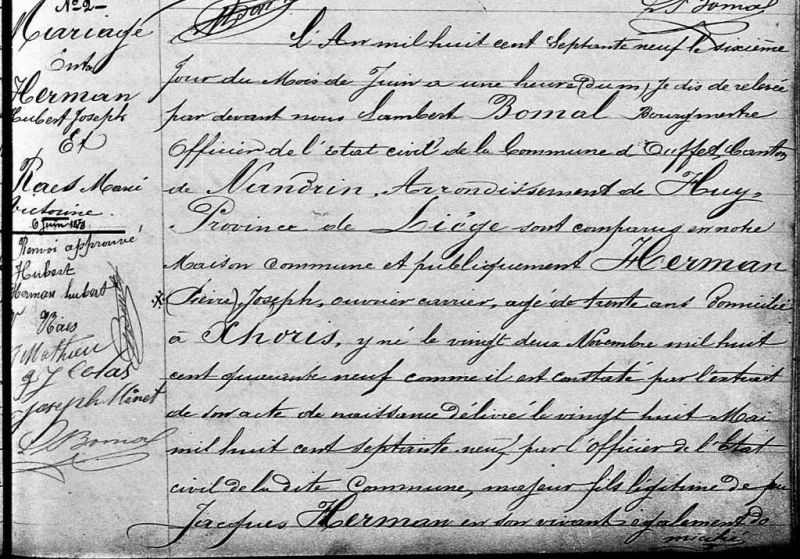 N° 2
Mariage
Entre
Herman
Hubert Joseph
Et
Raes Marie
Victorine
6 juin 1879
Renvoi approuvé
Hubert
Herman hubert
V Raes
Mathieu
J Colas
Joseph Ninet
L Bomal
L Bomal
L'An mil huit cent Septante neuf le sixième
Jour du Mois de Juin a une heure (dum) je dis de relevée
par devant nous Lambert Bomal Bourgmestre
Officier de l'état civil de la Commune d'Ouffet, Canton
de Nandrin, Arrondissement de Huy,
Province de Liège sont comparus en notre
Maison commune et publiquement Herman
(Pierre) Joseph, ouvrier carrier, agé de trente ans domicilié
à Xhoris, y né le vingt deux Novembre mil huit
cent quarante neuf comme il est constaté par l'extrait
de son acte de naissance délivré le vingt huit Mai
mil huit cent septante neuf, par l'officier de l'Etat
civil de la dite Commune, majeur fils légitime de feu
Jacques Herman en son vivant également do
micilié